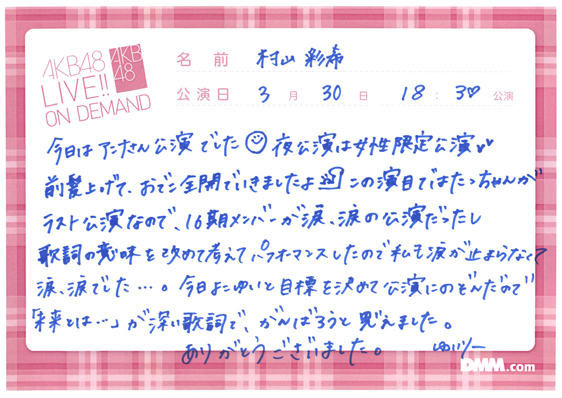 AKB48
LIVE!!
ON DEMAND
AKB
48
名前 村山彩希
公演日 3月30日 18:30 公演
今日はアンナさん公演でした 夜公演は女性限定公演
前髪上げて、おでこ全開でいきましたよ この演目ではたつちゃんが
ラスト公演なので、16期メンバーが涙、涙の公演だったし
歌詞の意味を改めて考えてパフォーマンスしたので私も涙が止まらなくて
涙、涙でした…。今日はゆいと目標を決めて公演にのぞんだので
「未来とは…」が深い歌詞で、がんばろうと思えました。
ありがとうございました。
DMM.com